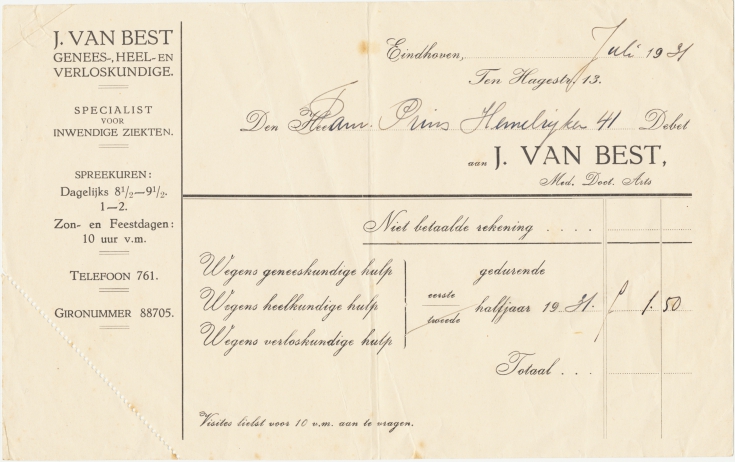 J. VAN BEST
GENEES-, HEEL- EN
VERLOSKUNDIGE.
SPECIALIST
VOOR
INWENDIGE ZIEKTEN.
SPREEKUREN:
Dagelijks 8½—9½.
1—2.
Zon- en Feestdagen:
10 uur v.m.
TELEFOON 761.
GIRONUMMER 88705.
Eindhoven, Juli 1931
Ten Hagestr. 13.
Den Fam. Prins Hemelrijken 41 Debet
aan J. VAN BEST,
Med. Doct. Arts
Niet betaalde rekening . . . .
Wegens geneeskundige hulp gedurende
Wegens heelkundige hulp eerste halfjaar 1931. f 1.50
tweede
Wegens verloskundige hulp
Totaal . . .
Visites liefst voor 10 v.m. aan te vragen.